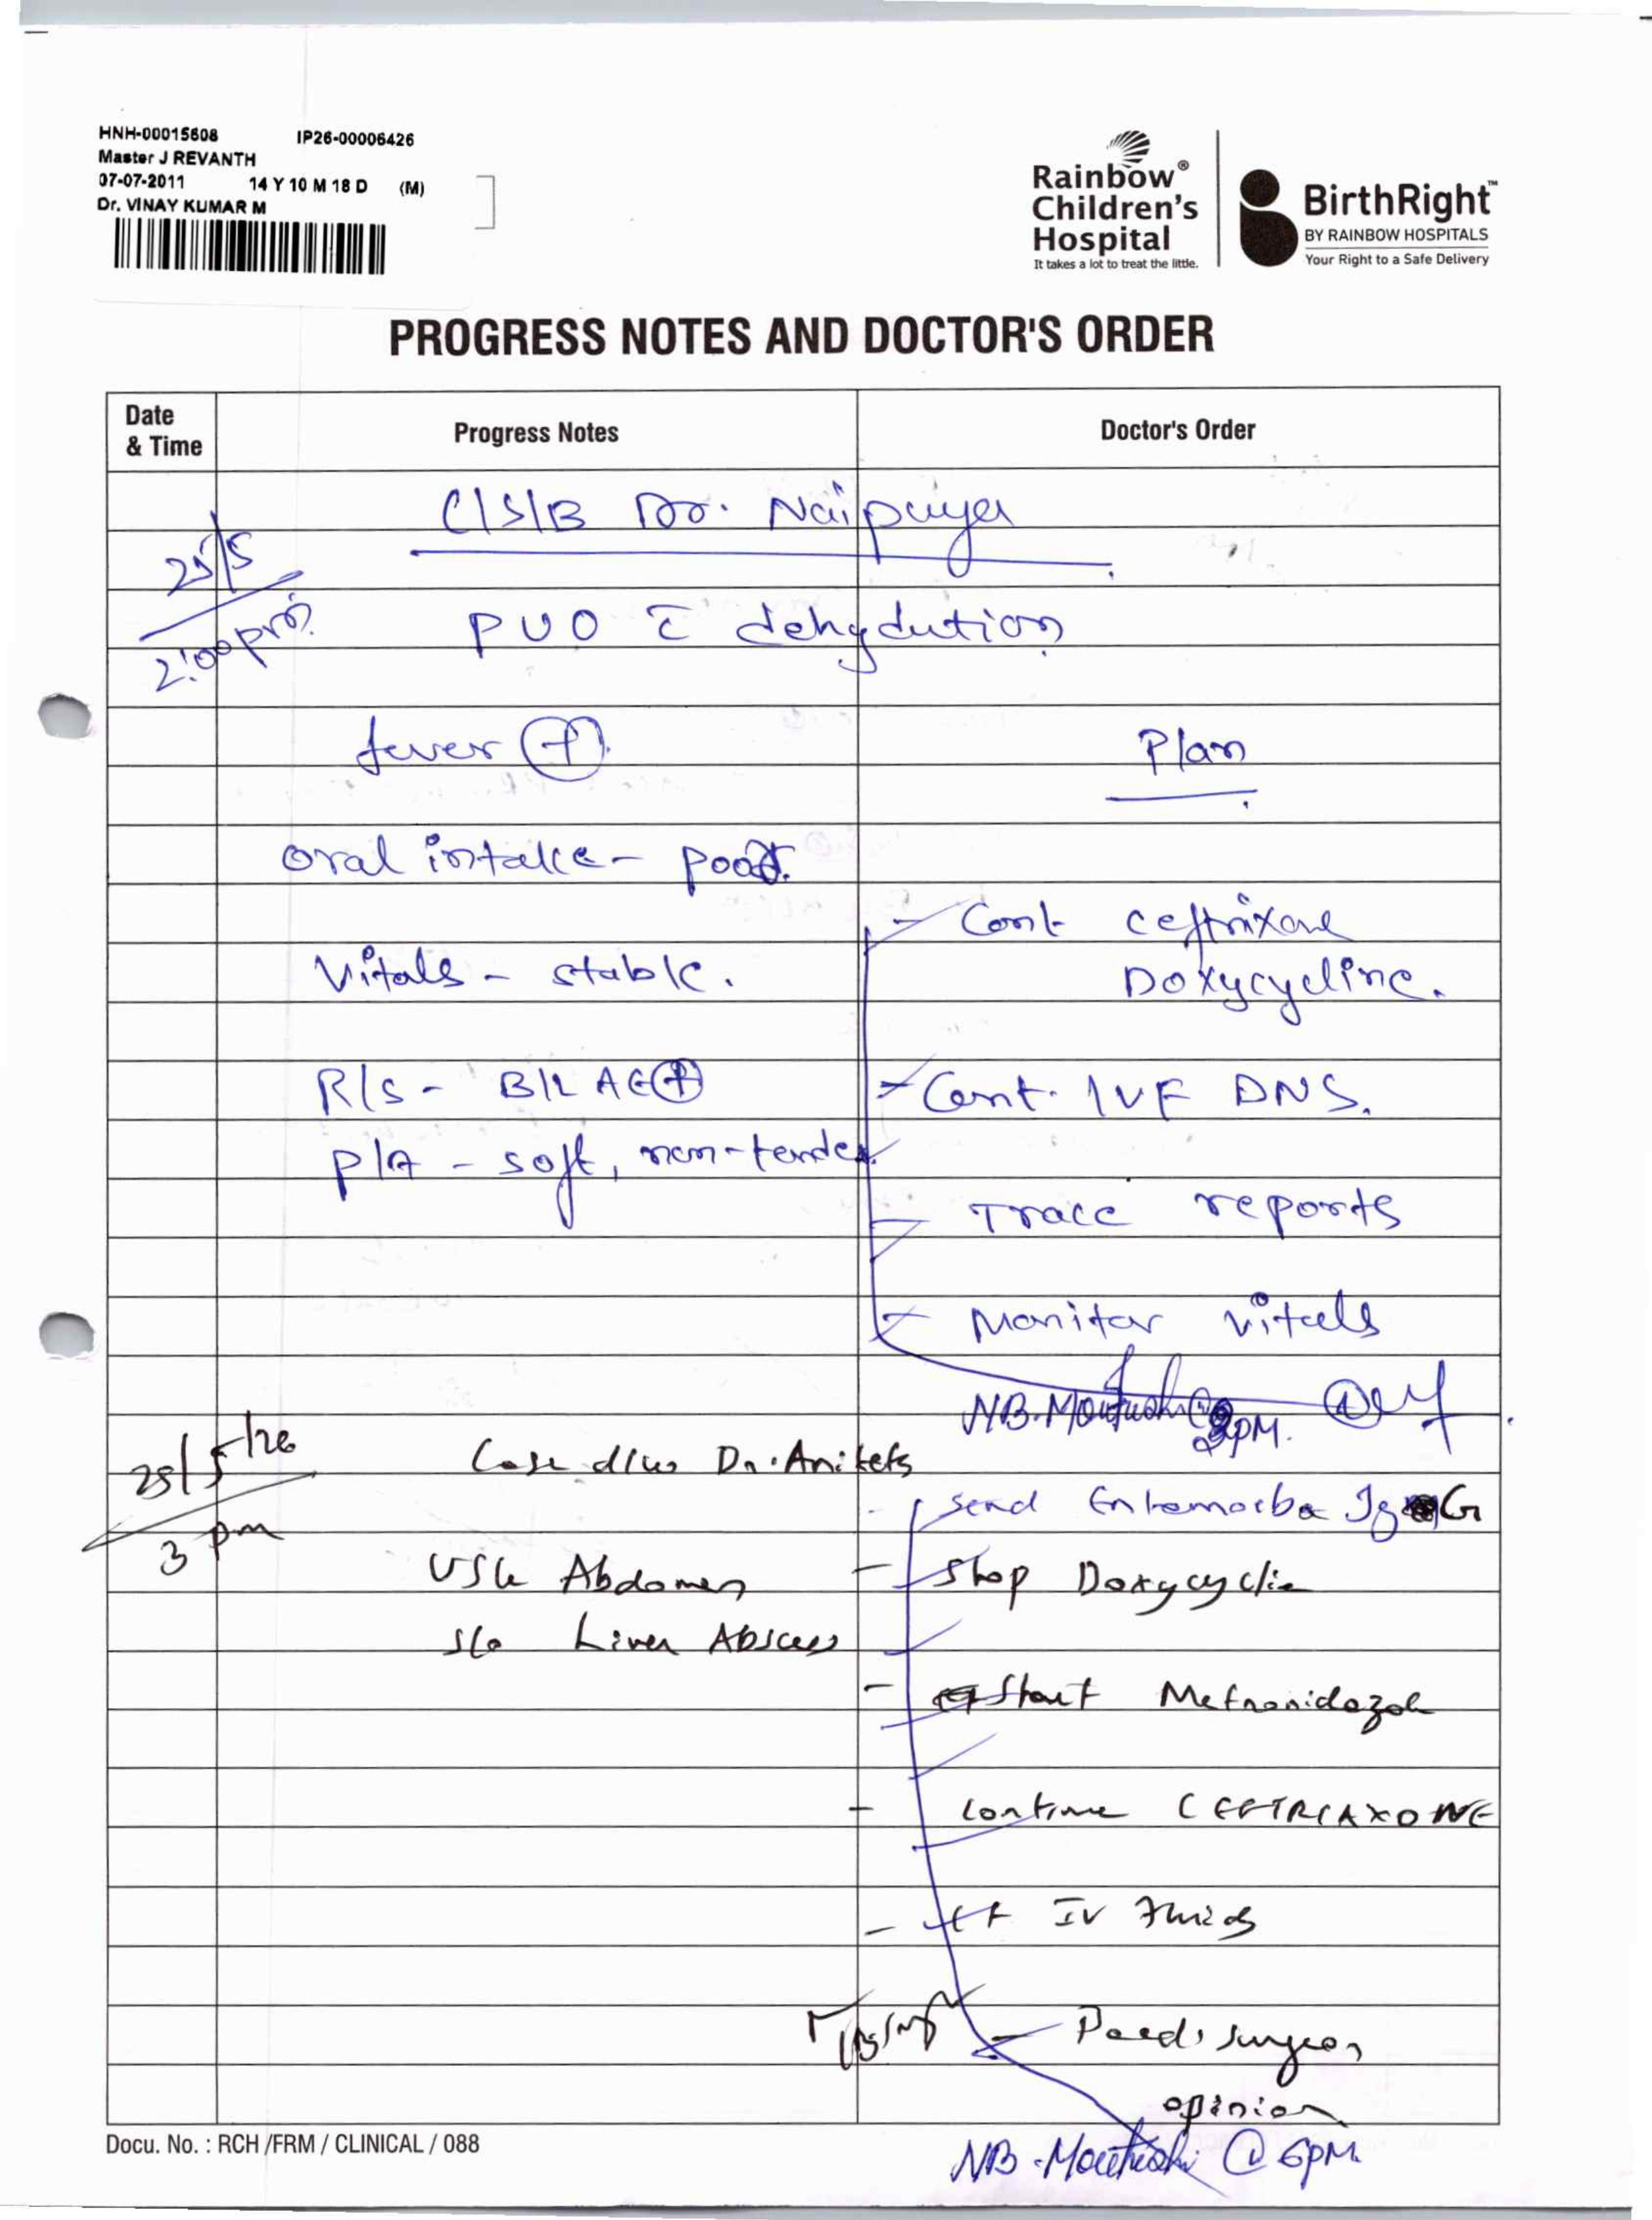 HNH-00015608 IP26-00006426
Master J REVANTH
07-07-2011 14 Y 10 M 18 D (M)
Dr. VINAY KUMAR M
Rainbow®
Children's
Hospital
It takes a lot to treat the little.
BirthRight™
BY RAINBOW HOSPITALS
Your Right to a Safe Delivery
PROGRESS NOTES AND DOCTOR'S ORDER
Date
& Time
Progress Notes
Doctor's Order
C/S/B Dr.
25/5
2:00pm
PUO c̄ dehydution
fever (+)
Plan
oral intake - poor.
Cont ceftrixone
Vitals - stable.
Doxycycline.
R/S - B/L AE(+)
Cont. IVF DNS.
P/A - soft, non-tender.
Trace reports
Monitor vitals
25/5/26
3 pm
Case d/w Dr.
NB. @ PM.
send Entamoeba Ig G
USG Abdomen
- Stop Doxycyclin
s/o Liver Abscess
- Start Metronidazole
- Continue CEFTRIAXONE
- IV fluids
- Paed. surgeon
opinion
Docu. No. : RCH /FRM / CLINICAL / 088
NB. @ 6PM.